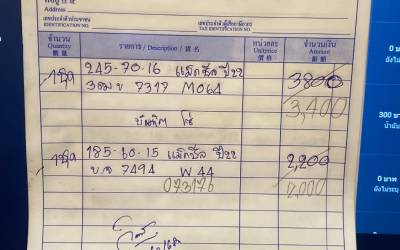 ที่อยู่
Address
เลขประจำตัวประชาชน
IDENTIFICATION NO.
เลขประจำตัวผู้เสียภาษีอากร
TAX IDENTIFICATION NO.
จำนวน
Quantity
數 量
รายการ / Description / 貨 名
หน่วยละ
Unitprice
價 格
จำนวนเงิน
Amount
銀 額
245-70-16 แม็กซีส ปี22 3800
7317 MO64 3,400
185-60-15 แม็กซีส ปี22 2,200
7494 W44
073176 2,000
0 บาท
300 บาท
0 บาท
ยังไม่ระบุ